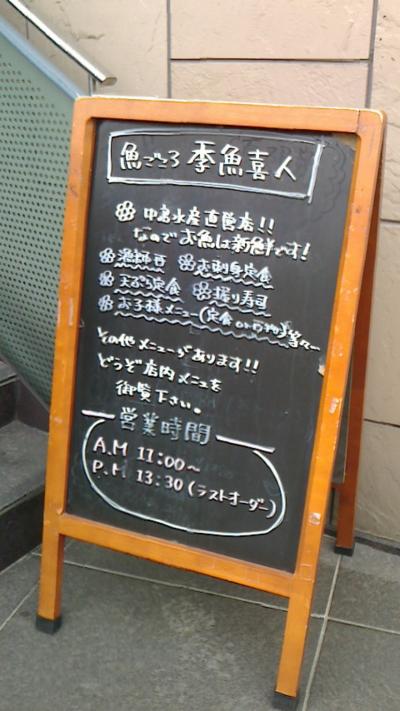 魚ごころ 季魚喜人
中島水産直営店!!
なのでお魚は新鮮です!
海鮮丼 お刺身定食
天ぷら定食 握り寿司
お子様メニュー(定食or 等々…
その他メニューがあります!!
どうぞ店内メニュを
御覧下さい。
営業時間
A.M 11:00〜
P.M 13:30(ラストオーダー)